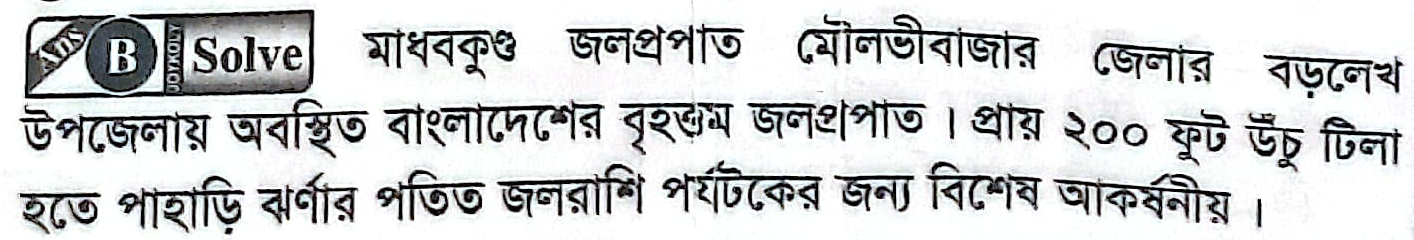 Ans B JOYKOLY Solve মাধবকুণ্ড জলপ্রপাত মৌলভীবাজার জেলার বড়লেখ
উপজেলায় অবস্থিত বাংলাদেশের বৃহত্তম জলপ্রপাত । প্রায় ২০০ ফুট উঁচু টিলা
হতে পাহাড়ি ঝর্ণার পতিত জলরাশি পর্যটকের জন্য বিশেষ আকর্ষনীয় ।